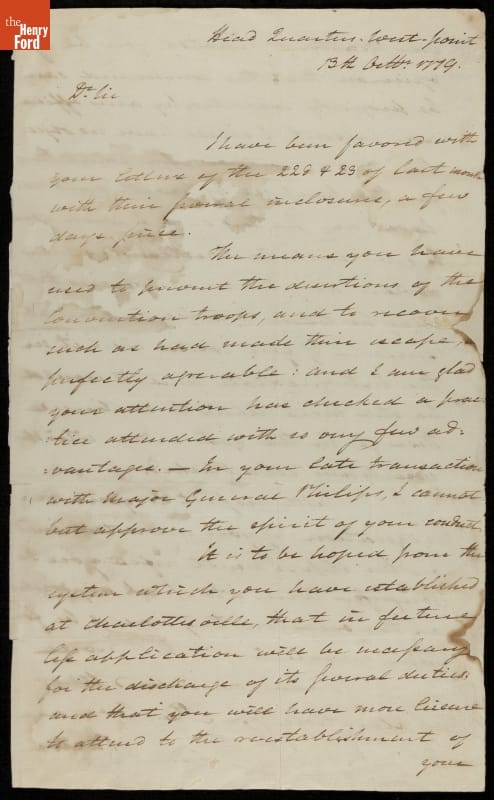 the
Henry
Ford
Head Quarters. West-point
13th Octbr. 1779.
Dr Sir
I have been favored with
your letters of the 22d & 23 of last month
with their several inclosures, a few
days since.
The means you have
used to prevent the desertions of the
Convention troops, and to recover
such as had made their escape,
perfectly agreeable: and I am glad
your attention has checked a prac-
tice attended with so very few ad-
-vantages. — In your late transaction
with Major General Philips, I cannot
but approve the spirit of your conduct.
It is to be hoped from the
system which you have established
at Charlottesville, that in future
less application will be necessary
for the discharge of its several duties:
and that you will have more leisure
to attend to the reestablishment of
your